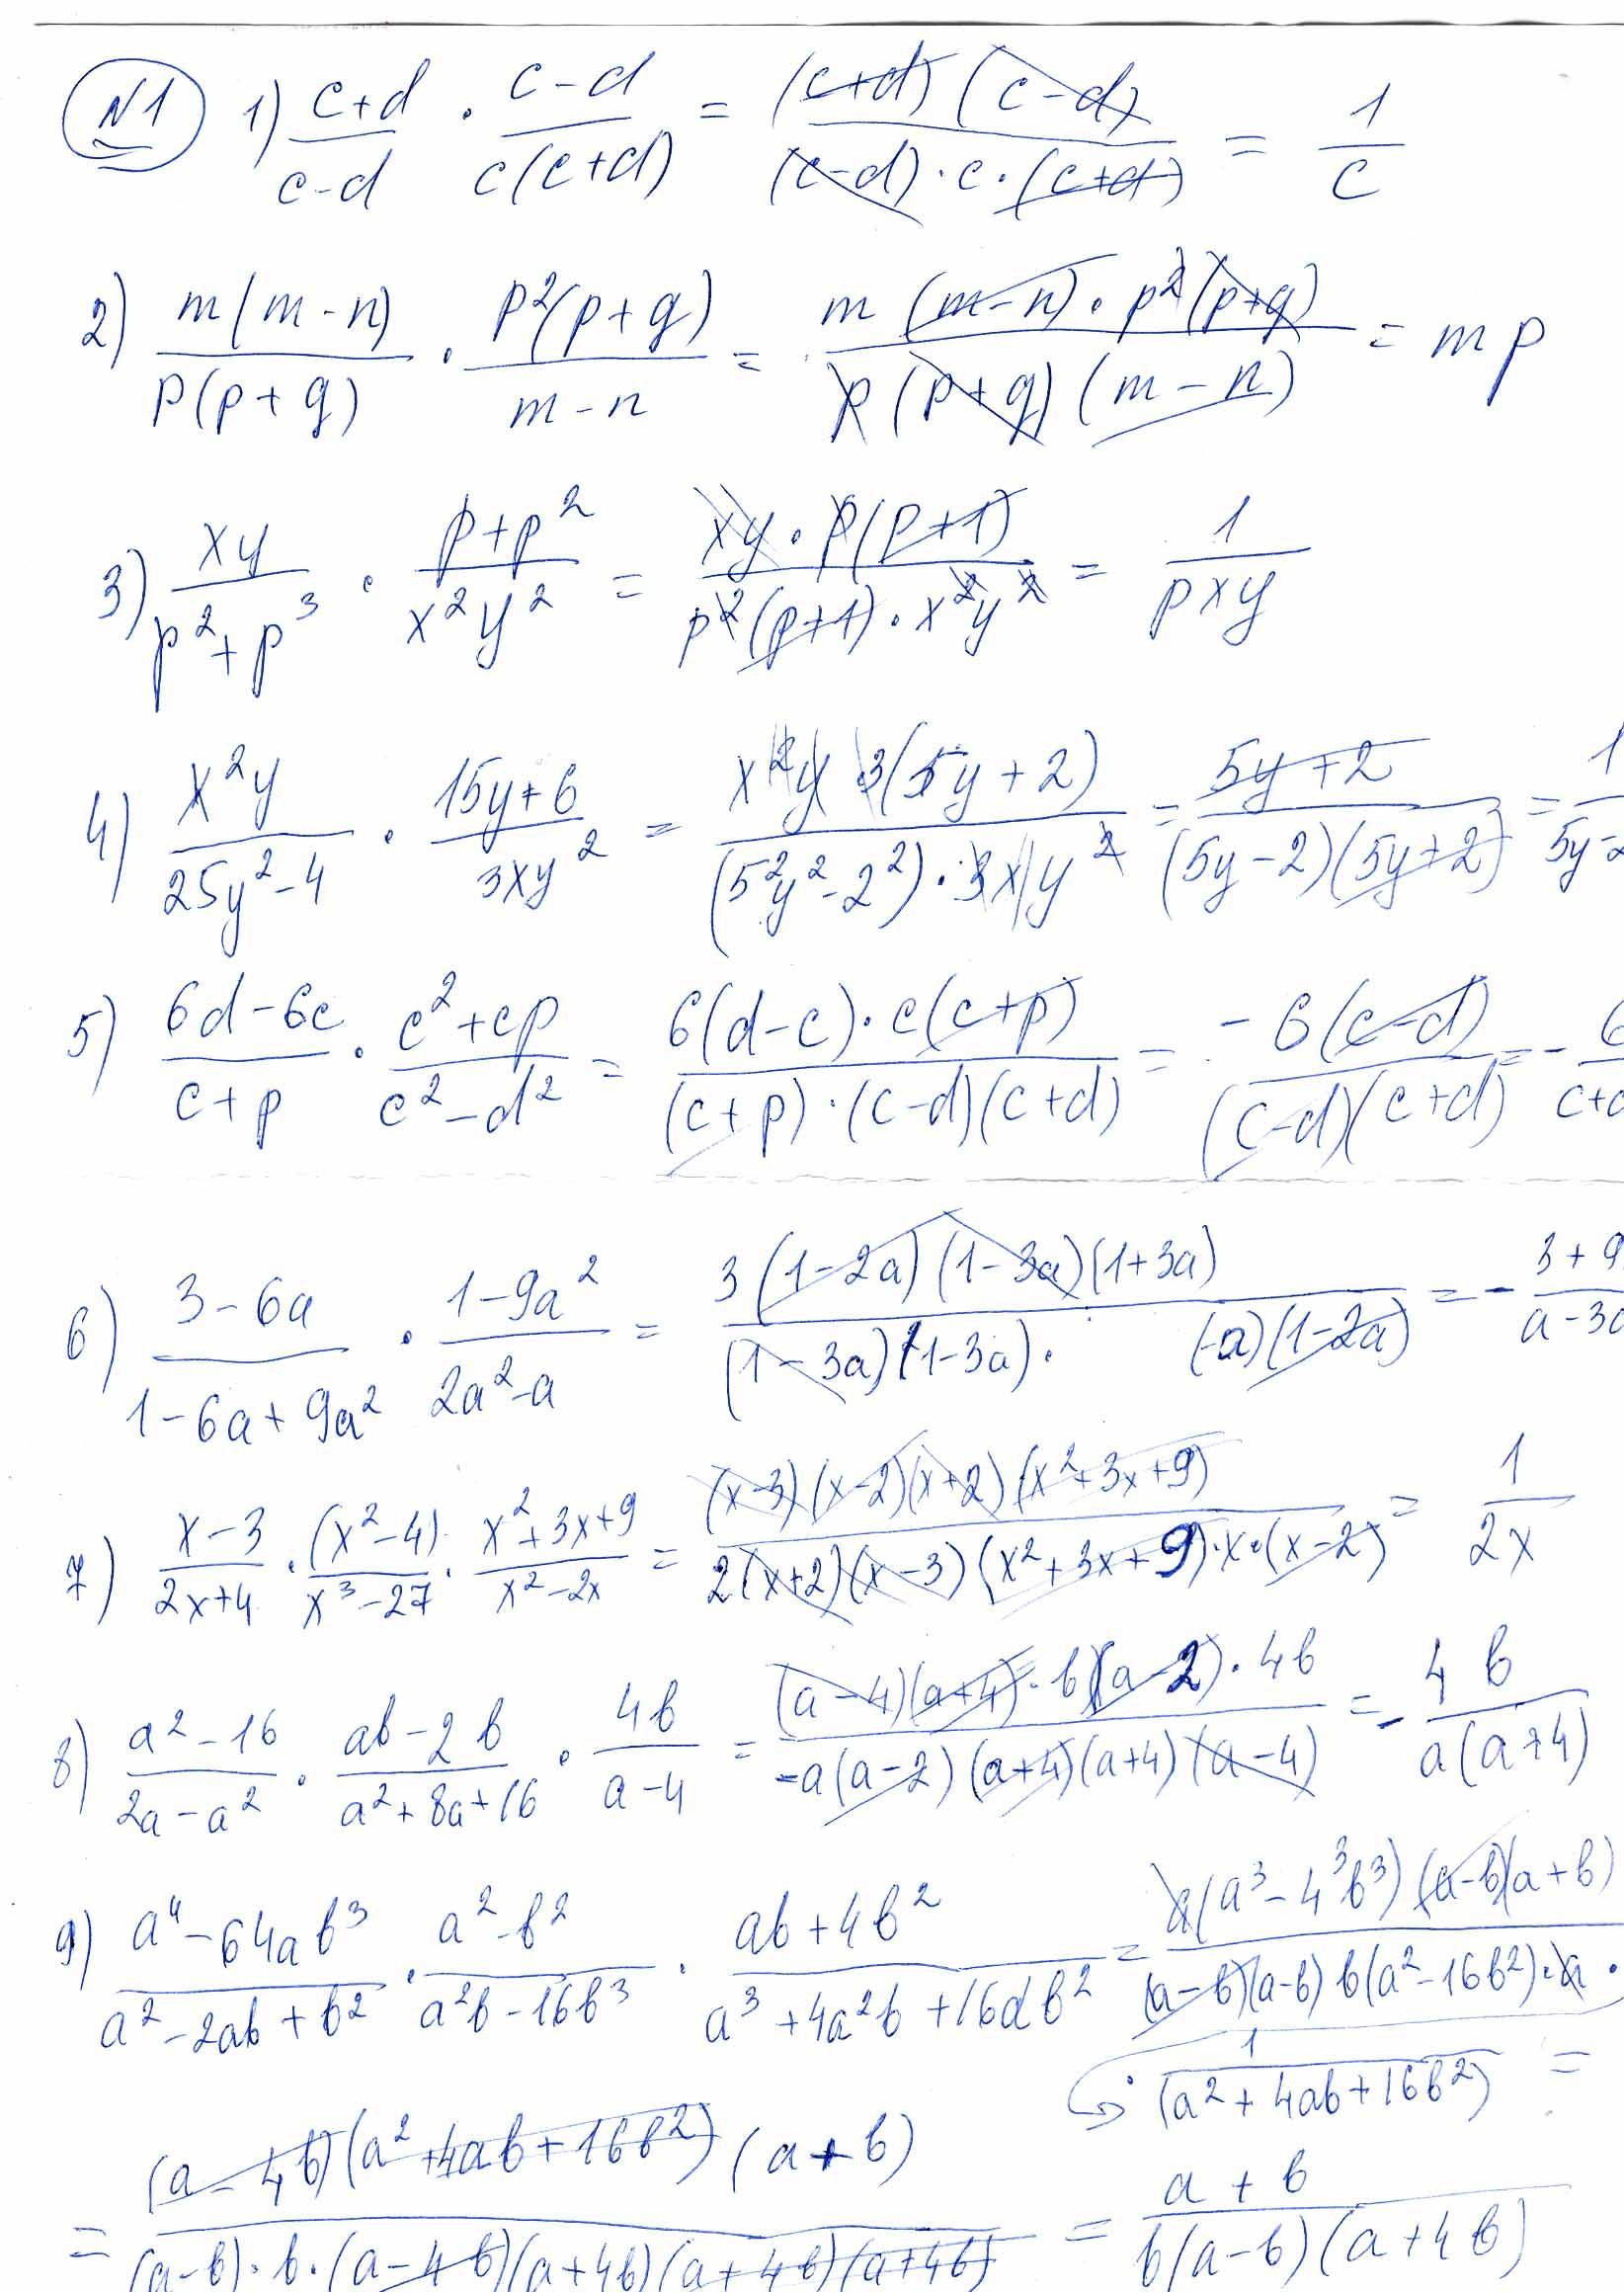 N1 1) (c+d)/(c-d) · (c-d)/(c(c+d)) = ((c+d)(c-d))/((c-d)·c·(c+d)) = 1/c
2) (m(m-n))/(p(p+q)) · (p²(p+q))/(m-n) = (m(m-n)·p²(p+q))/(p(p+q)(m-n)) = mp
3) (xy)/(p²+p³) · (p+p²)/(x²y²) = (xy·p(p+1))/(p²(p+1)·x²y²) = 1/(pxy)
4) (x²y)/(25y²-4) · (15y+6)/(3xy²) = (x²y·3(5y+2))/((5²y²-2²)·3xy²) = (5y+2)/((5y-2)(5y+2)) = 1/(5y-2
5) (6d-6c)/(c+p) · (c²+cp)/(c²-d²) = (6(d-c)·c(c+p))/((c+p)·(c-d)(c+d)) = (-6(c-d))/((c-d)(c+d)) = -6/(c+d
6) (3-6a)/(1-6a+9a²) · (1-9a²)/(2a²-a) = (3(1-2a)(1-3a)(1+3a))/((1-3a)(1-3a)·(-a)(1-2a)) = -(3+9)/(a-3a
7) (x-3)/(2x+4) · (x²-4)/(x³-27) · (x²+3x+9)/(x²-2x) = ((x-3)(x-2)(x+2)(x²+3x+9))/(2(x+2)(x-3)(x²+3x+9)·x·(x-2)) = 1/(2x)
8) (a²-16)/(2a-a²) · (ab-2b)/(a²+8a+16) · (4b)/(a-4) = ((a-4)(a+4)·b(a-2)·4b)/(-a(a-2)(a+4)(a+4)(a-4)) = -(4b)/(a(a+4))
9) (a⁴-64ab³)/(a²-2ab+b²) · (a²-b²)/(a²b-16b³) · (ab+4b²)/(a³+4a²b+16ab²) = (a(a³-4³b³)(a-b)(a+b))/((a-b)(a-b)b(a²-16b²)·a·
· 1/(a²+4ab+16b²) =
= ((a-4b)(a²+4ab+16b²)(a+b))/((a-b)·b·(a-4b)(a+4b)(a+4b)(a+4b)) = (a+b)/(b(a-b)(a+4b))